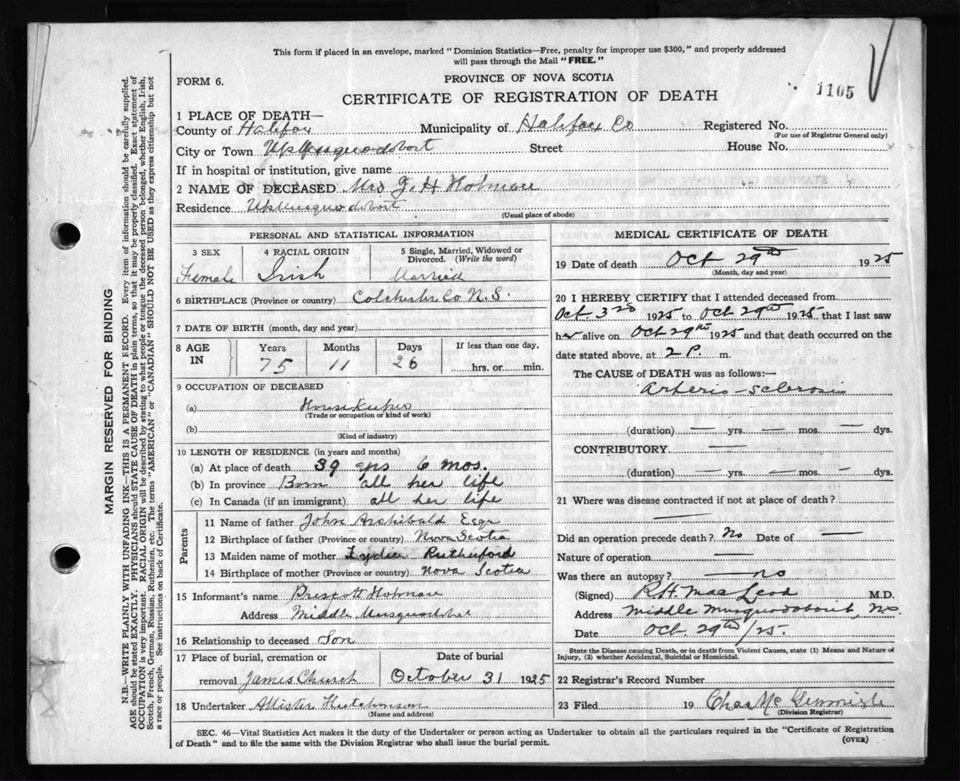 This form if placed in an envelope, marked "Dominion Statistics—Free, penalty for improper use $300," and properly addressed
will pass through the Mail "FREE."
FORM 6.
PROVINCE OF NOVA SCOTIA
1105
CERTIFICATE OF REGISTRATION OF DEATH
1 PLACE OF DEATH—
County of Halifax Municipality of Halifax Co Registered No.
(For use of Registrar General only)
City or Town Up Musquodoboit Street House No.
If in hospital or institution, give name
2 NAME OF DECEASED Mrs J. H Holman
Residence Up Musquodoboit
(Usual place of abode)
PERSONAL AND STATISTICAL INFORMATION
3 SEX 4 RACIAL ORIGIN 5 Single, Married, Widowed or
Divorced. (Write the word)
Female Irish Married
6 BIRTHPLACE (Province or country) Colchester Co N.S.
7 DATE OF BIRTH (month, day and year)
8 AGE IN Years Months Days If less than one day,
75 11 26 hrs. or min.
9 OCCUPATION OF DECEASED
(a) Housekeeper
(Trade or occupation or kind of work)
(b)
(Kind of industry)
10 LENGTH OF RESIDENCE (in years and months)
(a) At place of death 39 yrs 6 mos.
(b) In province Born all her life
(c) In Canada (if an immigrant) all her life
Parents
11 Name of father John Archibald Esqr
12 Birthplace of father (Province or country) Nova Scotia
13 Maiden name of mother Lydia Rutherford
14 Birthplace of mother (Province or country) Nova Scotia
15 Informant's name Prescott Holman
Address Middle Musquodoboit
16 Relationship to deceased Son
17 Place of burial, cremation or Date of burial
removal James Church October 31 1925
18 Undertaker Allister Hutchinson
(Name and address)
MEDICAL CERTIFICATE OF DEATH
19 Date of death Oct 29th 1925
(Month, day and year)
20 I HEREBY CERTIFY that I attended deceased from
Oct 3rd 1925 to Oct 29th 1925, that I last saw
her alive on Oct 29th 1925 and that death occurred on the
date stated above, at 2 P. m.
The CAUSE of DEATH was as follows:—
Arterio-sclerosis
(duration) — yrs. — mos. — dys.
CONTRIBUTORY —
(duration) — yrs. — mos. — dys.
21 Where was disease contracted if not at place of death?
—
Did an operation precede death? No Date of —
Nature of operation —
Was there an autopsy? — no
(Signed) R.H. MacLeod M.D.
Address Middle Musquodoboit, N.S.
Date Oct 29th/25.
State the Disease causing Death, or in death from Violent Causes, state (1) Means and Nature of
Injury, (2) whether Accidental, Suicidal or Homicidal.
22 Registrar's Record Number
23 Filed 19 Chas Mc
(Division Registrar)
SEC. 46—Vital Statistics Act makes it the duty of the Undertaker or person acting as Undertaker to obtain all the particulars required in the "Certificate of Registration
of Death" and to file the same with the Division Registrar who shall issue the burial permit.
(OVER)
MARGIN RESERVED FOR BINDING
N.B.—WRITE PLAINLY WITH UNFADING INK—THIS IS A PERMANENT RECORD. Every item of information should be carefully supplied.
AGE should be stated EXACTLY. PHYSICIANS should STATE CAUSE OF DEATH in plain terms, so that it may be properly classified. Exact statement of
OCCUPATION is very important. RACIAL ORIGIN will be described by stating to what people or tongue the deceased person belonged, whether English, Irish,
Scotch, French, German, Russian, Ruthenian, etc. The terms "AMERICAN" or "CANADIAN" SHOULD NOT BE USED as they express citizenship but not
a race or people. See instructions on back of Certificate.